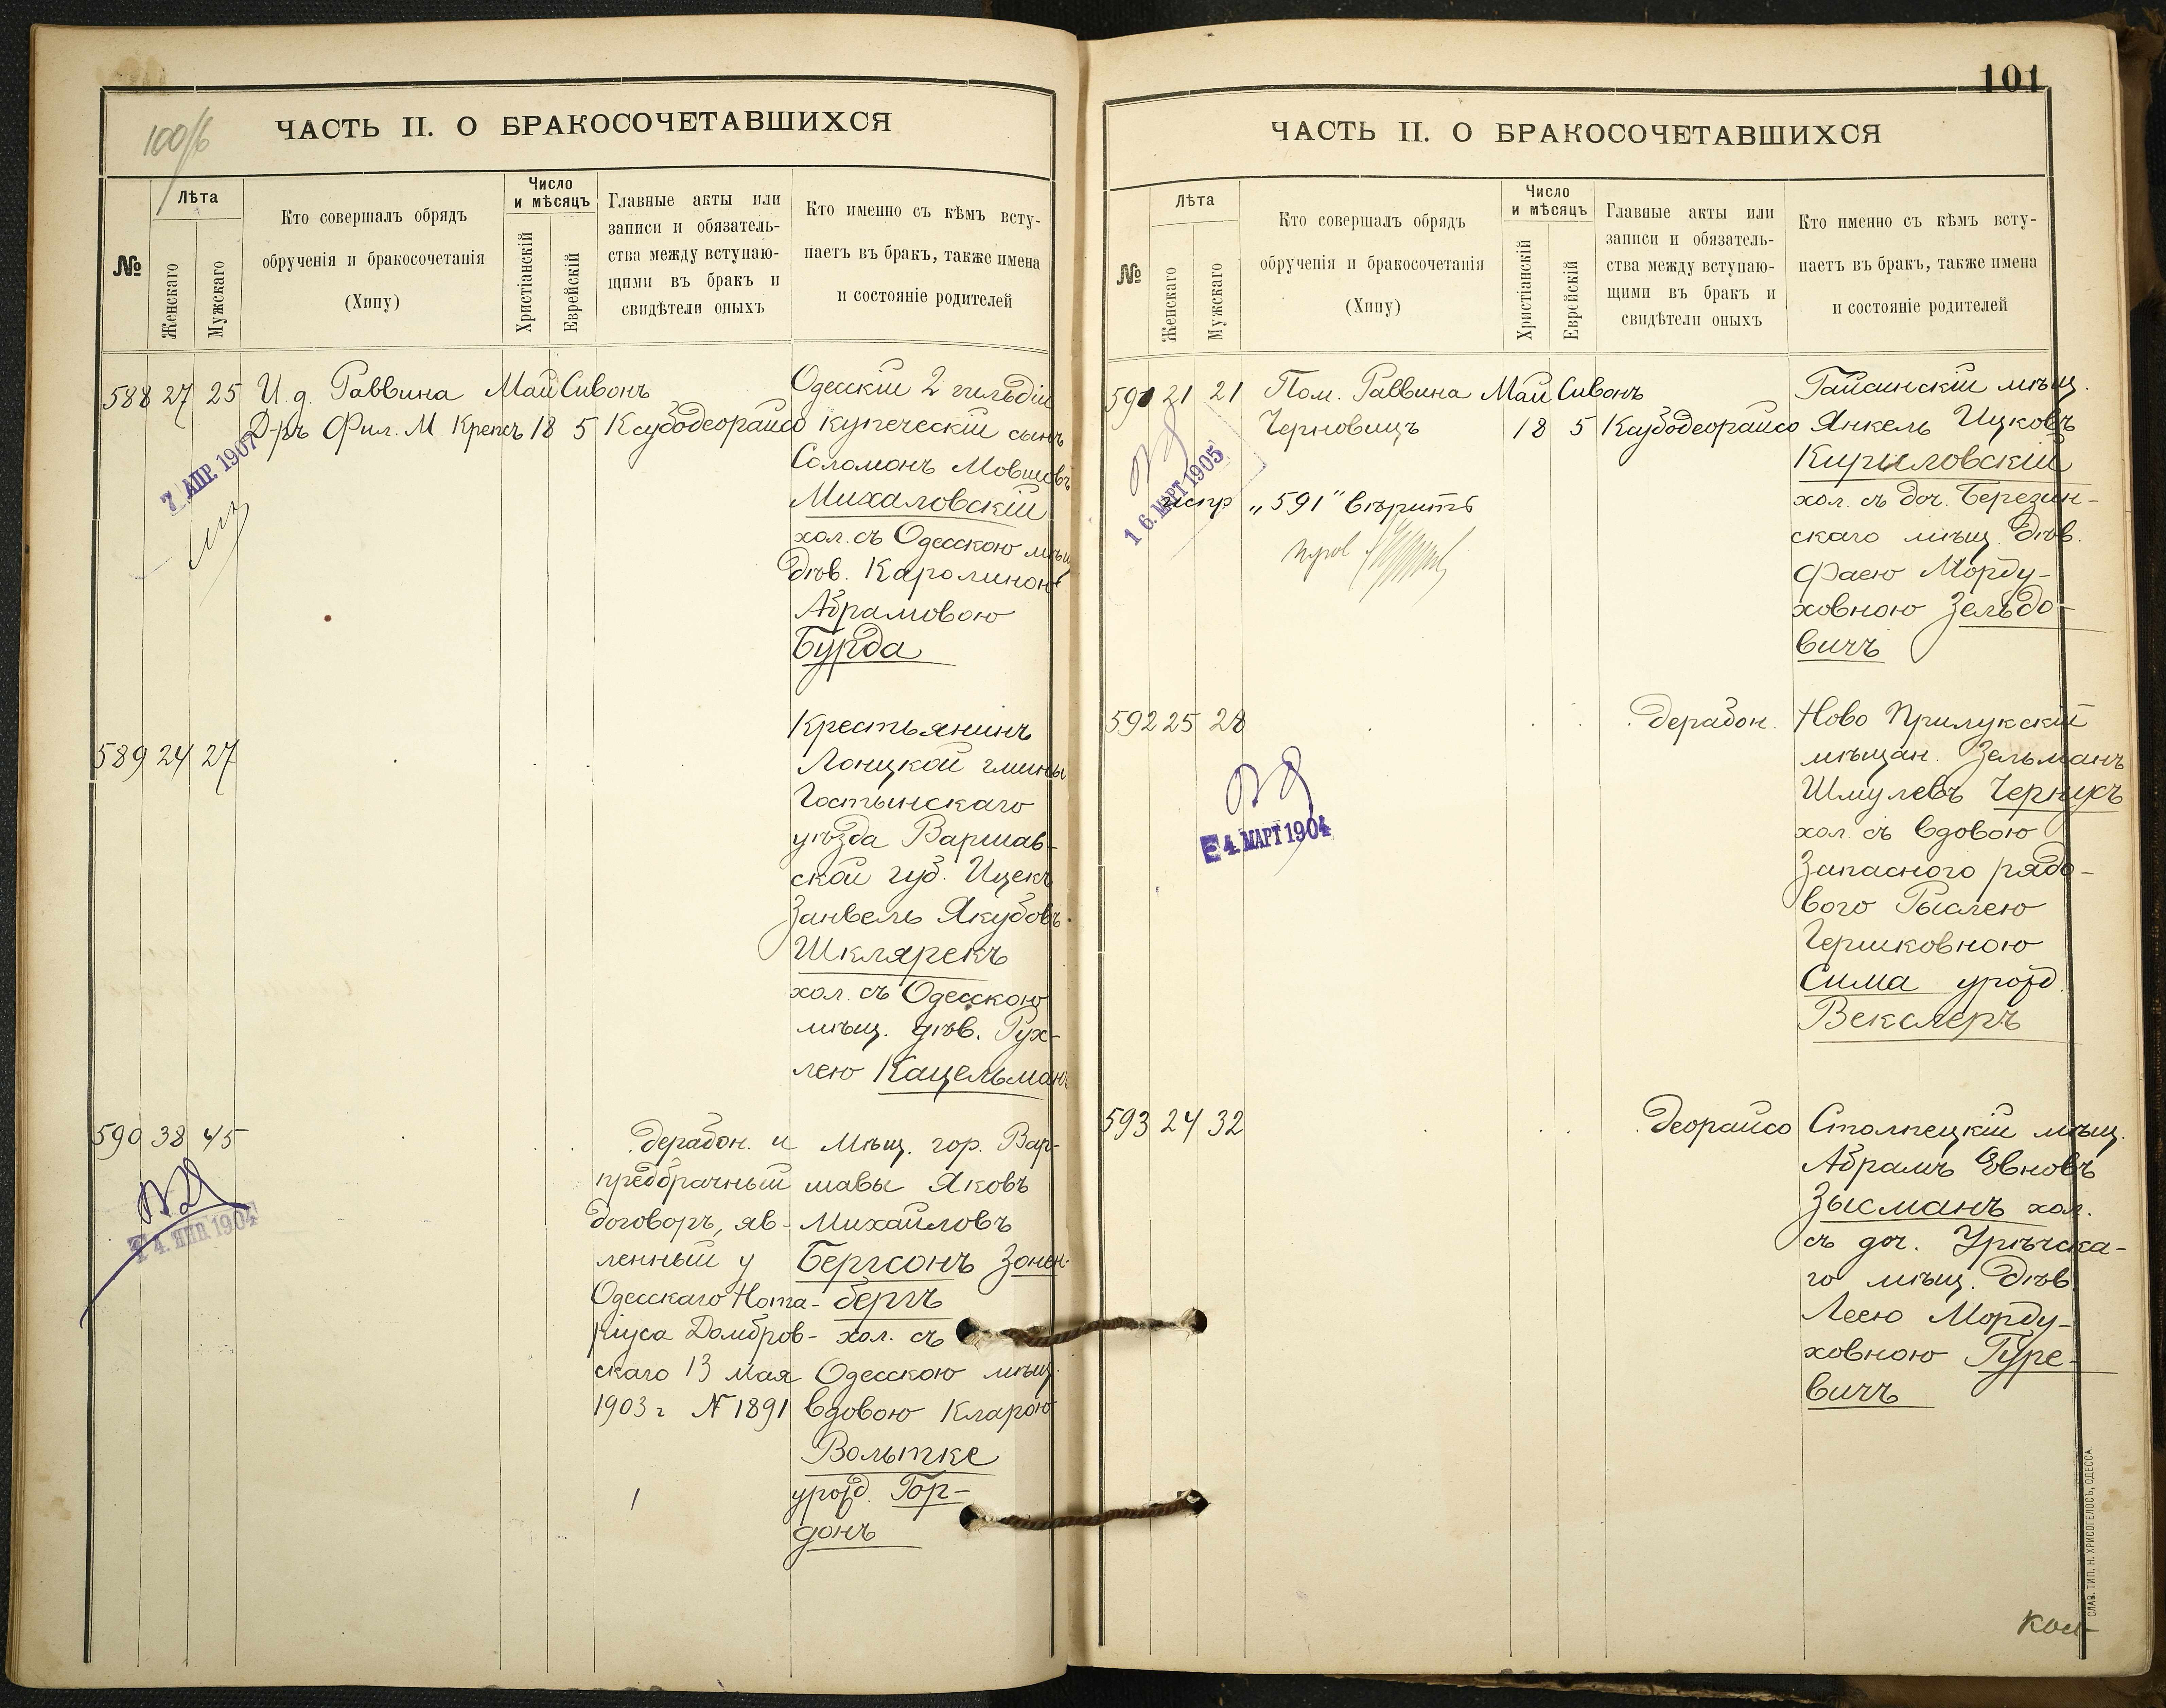 100/б
ЧАСТЬ II. О БРАКОСОЧЕТАВШИХСЯ
№
Лѣта
Женскаго
Мужскаго
Кто совершалъ обрядъ
обрученія и бракосочетанія
(Хипу)
Число
и мѣсяцъ
Христіанскій
Еврейскій
Главные акты или
записи и обязатель-
ства между вступаю-
щими въ бракъ и
свидѣтели оныхъ
Кто именно съ кѣмъ всту-
паетъ въ бракъ, также имена
и состояніе родителей
588 27 25 И. д. Раввина Май Сивонъ
Д-ръ Фил. М Крепсъ 18 5 Ксубодеорайсо
7 АПР. 1907
Одесскій 2 гильдіи
купеческій сынъ
Соломонъ Мовшовъ
Михаловскій
хол. съ Одесскою мѣщ
дѣв. Каролиною
Абрамовою
Бурда
589 24 27
Крестьянинъ
Лонцкой гмины
Гостынскаго
уѣзда Варшав-
ской губ. Ицекъ
Занвель Якубовъ
Шклярекъ
хол. съ Одесскою
мѣщ. дѣв. Рух-
лею Кацельманъ
590 38 45
4. ЯНВ 1904
дерабон. и
предбрачный
договоръ, яв-
ленный у
Одесскаго Нота-
ріуса Домбров-
скаго 13 Мая
1903 г № 1891
Мѣщ. гор. Вар-
шавы Яковъ
Михайловъ
Бергсонъ Зонен-
бергъ
хол. съ
Одесскою мѣщ.
вдовою Кларою
Вольтке
урожд. Гор-
донъ
101
ЧАСТЬ II. О БРАКОСОЧЕТАВШИХСЯ
№
Лѣта
Женскаго
Мужскаго
Кто совершалъ обрядъ
обрученія и бракосочетанія
(Хипу)
Число
и мѣсяцъ
Христіанскій
Еврейскій
Главные акты или
записи и обязатель-
ства между вступаю-
щими въ бракъ и
свидѣтели оныхъ
Кто именно съ кѣмъ всту-
паетъ въ бракъ, также имена
и состояніе родителей
591 21 21 Пом. Раввина Май Сивонъ
Черновицъ 18 5 Ксубодеорайсо
16. МАРТ 1905
испр „591“ вѣрить
Гайсинскій мѣщ.
Янкель Ицковъ
Кириловскій
хол. съ доч. Березин-
скаго мѣщ. дѣв.
Фаею Морду-
ховною Зельдо-
вичъ
592 25 28 дерабон.
4. МАРТ 1904
Ново Прилукскій
мѣщан. Зельманъ
Шмулевъ Чернухъ
хол. съ вдовою
Запасного рядо-
вого Рыслею
Гершковною
Сима урожд.
Векслеръ
593 24 32 деорайсо
Столпецкій мѣщ.
Абрамъ Евновъ
Зысманъ хол.
съ доч. Урѣчска-
го мѣщ. дѣв.
Леею Морду-
ховною Гуре-
вичъ
СЛАВ. ТИП. Н. ХРИСОГЕЛОСЪ, ОДЕССА.